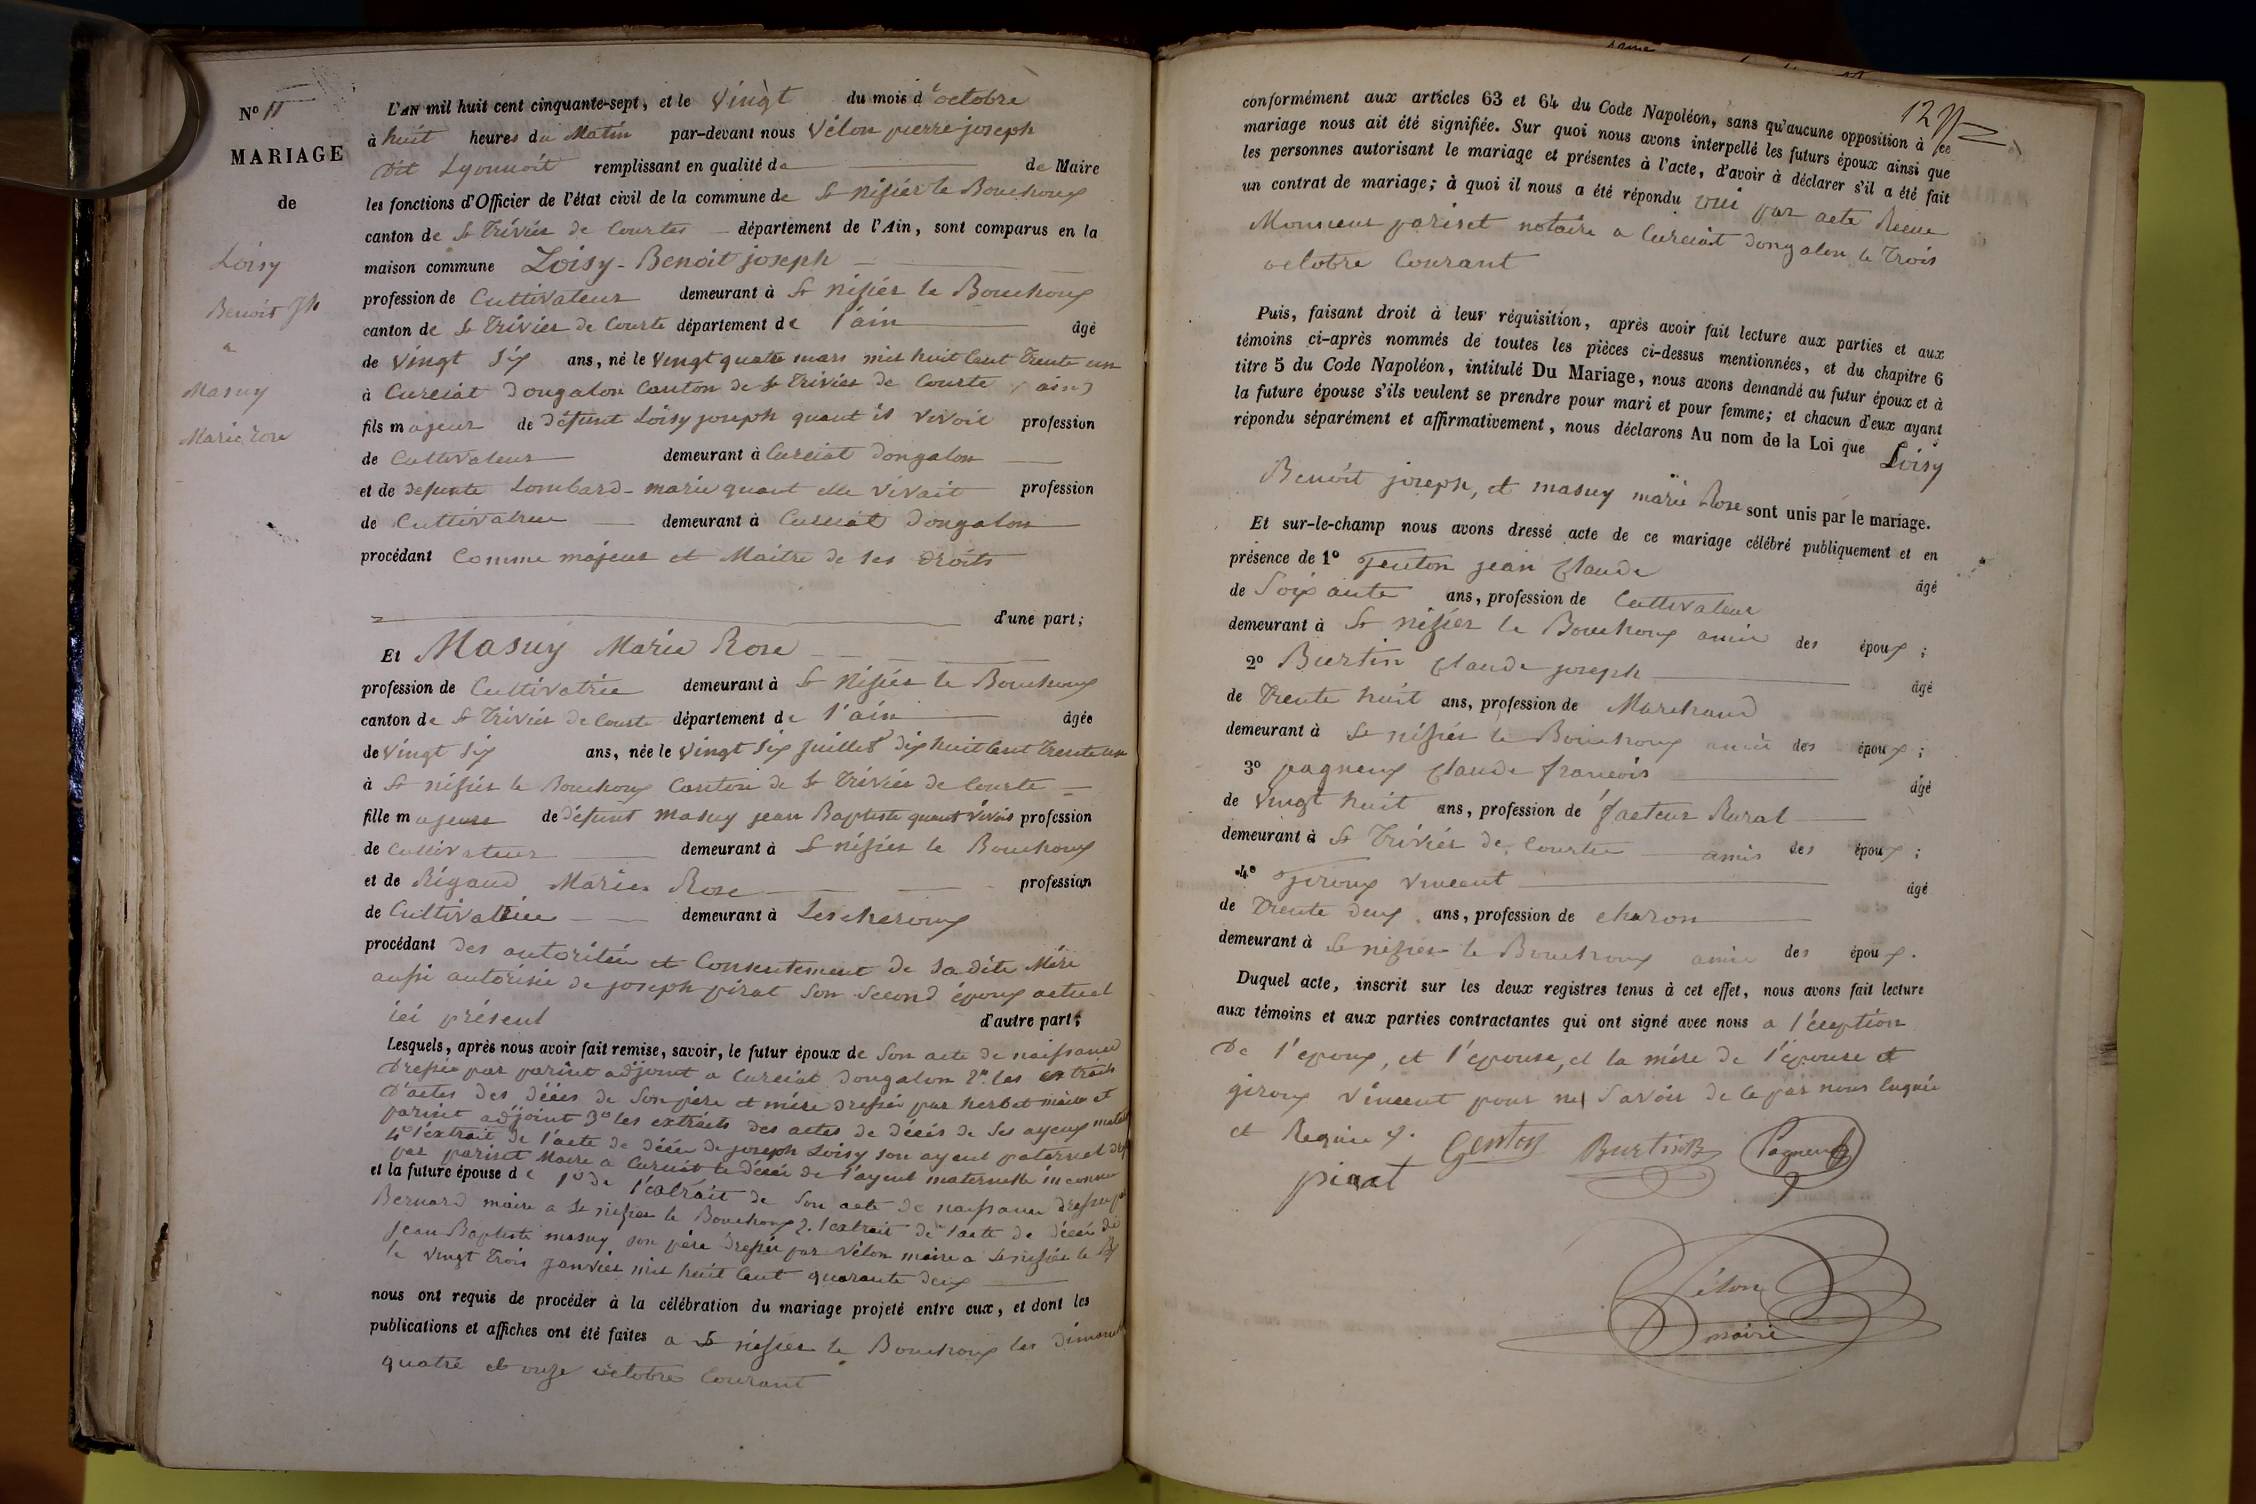 No 11
MARIAGE
de
Loisy
Benoit Jh
a
Masuy
Marie rose
L'AN mil huit cent cinquante-sept, et le vingt du mois d'octobre
à huit heures du Matin par-devant nous Vélon pierre joseph
dit Lyonnoit remplissant en qualité de de Maire
les fonctions d'Officier de l'état civil de la commune de St nisier le Bouchoux
canton de St Trivier de Courtes département de l'Ain, sont comparus en la
maison commune Loisy-Benoit joseph
profession de Cultivateur demeurant à St nisier le Bouchoux
canton de St Trivier de Courte département de l'ain âgé
de vingt six ans, né le vingt quatre mars mil huit Cent Trente un
à Curciat dongalon Canton de St Trivier de Courte (ain)
fils majeur de défunt Loisy joseph quant il vivoit profession
de Cultivateur demeurant à Curciat dongalon
et de defunte Lombard-marie quant elle vivait profession
de Cultivatrice demeurant à Curciat Dongalon
procédant Comme majeur et Maitre de ses droits
d'une part;
Et Masuy Marie Rose
profession de Cultivatrice demeurant à St Nisier le Bouchoux
canton de St Trivier de Courte département de l'ain âgée
de vingt six ans, née le vingt six juillet dix huit Cent Trente un
à St nisier le Bouchoux Canton de St Trivier de Courte
fille majeure de défunt masuy jean Baptiste quant vivois profession
de Cultivateur demeurant à St nisier le Bouchoux
et de Rigaud Marie Rose profession
de Cultivatrice demeurant à Lescheroux
procédant des autoritée et Consentement de Sadite Mére
aussi autorisée de joseph pirat Son Second époux actuel
ici présent d'autre part;
Lesquels, après nous avoir fait remise, savoir, le futur époux de Son acte de naissance
dressée par parint adjoint a Curciat dongalon 2º les extraits
d'actes des décés de Son pére et mére dressée par herbet maire et
parint adjoint 3º les extraits des actes de décés de Ses ayeux
4º l'extrait de l'acte de décée de joseph Loisy son ayeul paternel
par parint Maire a Curciat le décée de l'ayeul maternelle inconnu
et la future épouse de 1º de l'extrait de Son acte de naissance
Bernard maire a St nisier le Bouchoux 2. l'extrait de l'acte de décée de
jean Baptiste masuy son pére dressée par vélon maire a St nisier le
le vingt Trois janvier mil huit Cent quarante deux
nous ont requis de procéder à la célébration du mariage projeté entre eux, et dont les
publications et affiches ont été faites a St nisier le Bouchoux les
quatre et onze octobre Courant
conformément aux articles 63 et 64 du Code Napoléon, sans qu'aucune opposition à ce
mariage nous ait été signifiée. Sur quoi nous avons interpellé les futurs époux ainsi que
les personnes autorisant le mariage et présentes à l'acte, d'avoir à déclarer s'il a été fait
un contrat de mariage; à quoi il nous a été répondu oui par acte Recue
Monsieur pariset notaire a Curciat dongalon le Trois
octobre Courant
Puis, faisant droit à leur réquisition, après avoir fait lecture aux parties et aux
témoins ci-après nommés de toutes les pièces ci-dessus mentionnées, et du chapitre 6
titre 5 du Code Napoléon, intitulé Du Mariage, nous avons demandé au futur époux et à
la future épouse s'ils veulent se prendre pour mari et pour femme; et chacun d'eux ayant
répondu séparément et affirmativement, nous déclarons Au nom de la Loi que Loisy
Benoit joseph, et masuy marie Rose sont unis par le mariage.
Et sur-le-champ nous avons dressé acte de ce mariage célébré publiquement et en
présence de 1º Jenton jean Claude âgé
de Soixante ans, profession de Cultivateur
demeurant à St nisier le Bouchoux amie des époux;
2º Burtin Claude joseph âgé
de Trente huit ans, profession de Marchand
demeurant à St nisier le Bouchoux amie des époux;
3º pagneux Claude francois âgé
de vingt huit ans, profession de facteur Rural
demeurant à St Trivier de Courte amis des époux;
4º Giroux Vincent âgé
de Trente deux ans, profession de charon
demeurant à St nisier le Bouchoux amie des époux.
Duquel acte, inscrit sur les deux registres tenus à cet effet, nous avons fait lecture
aux témoins et aux parties contractantes qui ont signé avec nous a l'éception
de l'epoux, et l'epouse, et la mére de l'épouse et
giroux vincent pour ne Savoir de ce par nous Enquis
et Requis
Genton Burtin Pagneux
pirat
Vélon
maire